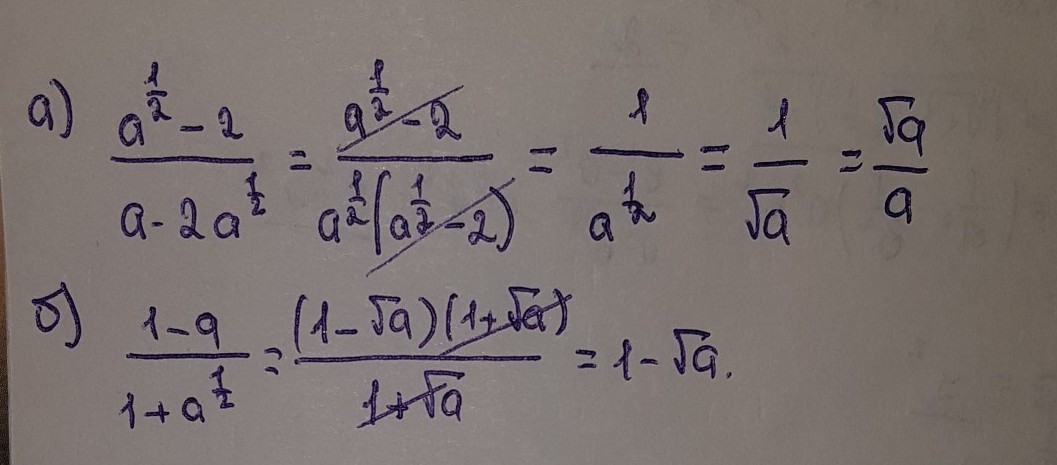 а) (a^(1/2) - 2)/(a - 2a^(1/2)) = (a^(1/2) - 2)/(a^(1/2)(a^(1/2) - 2)) = 1/a^(1/2) = 1/√a = √a/a
б) (1 - a)/(1 + a^(1/2)) = ((1 - √a)(1 + √a))/(1 + √a) = 1 - √a.